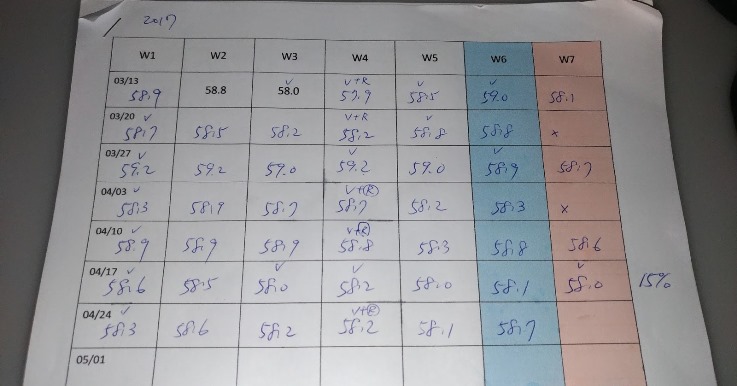 2017
W1 W2 W3 W4 W5 W6 W7
03/13 ✓ V+R ✓ ✓
58.9 58.8 58.0 57.9 58.5 59.0 58.1
03/20 ✓ V+R ✓
58.7 58.5 58.2 58.2 58.8 58.8 x
03/27 ✓ ✓ ✓
59.2 59.2 59.0 59.2 59.0 58.9 58.7
04/03 ✓ V+R
58.3 58.9 58.7 58.7 58.2 58.3 x
04/10 ✓ V+R
58.9 58.9 58.9 58.8 58.3 58.8 58.6
04/17 ✓ ✓ ✓ ✓
58.6 58.5 58.0 58.2 58.0 58.1 58.0 15%
04/24 ✓ V+R
58.3 58.6 58.2 58.2 58.1 58.7
05/01